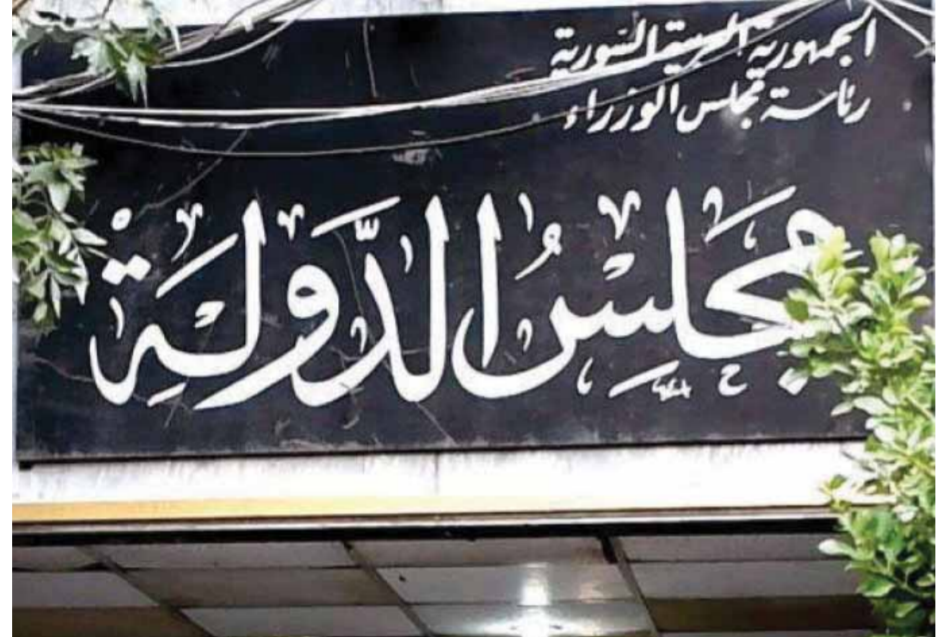 الجمهورية العربية السورية
رئاسة مجلس الوزراء
مَجْلِسُ الدَّوْلَةِ